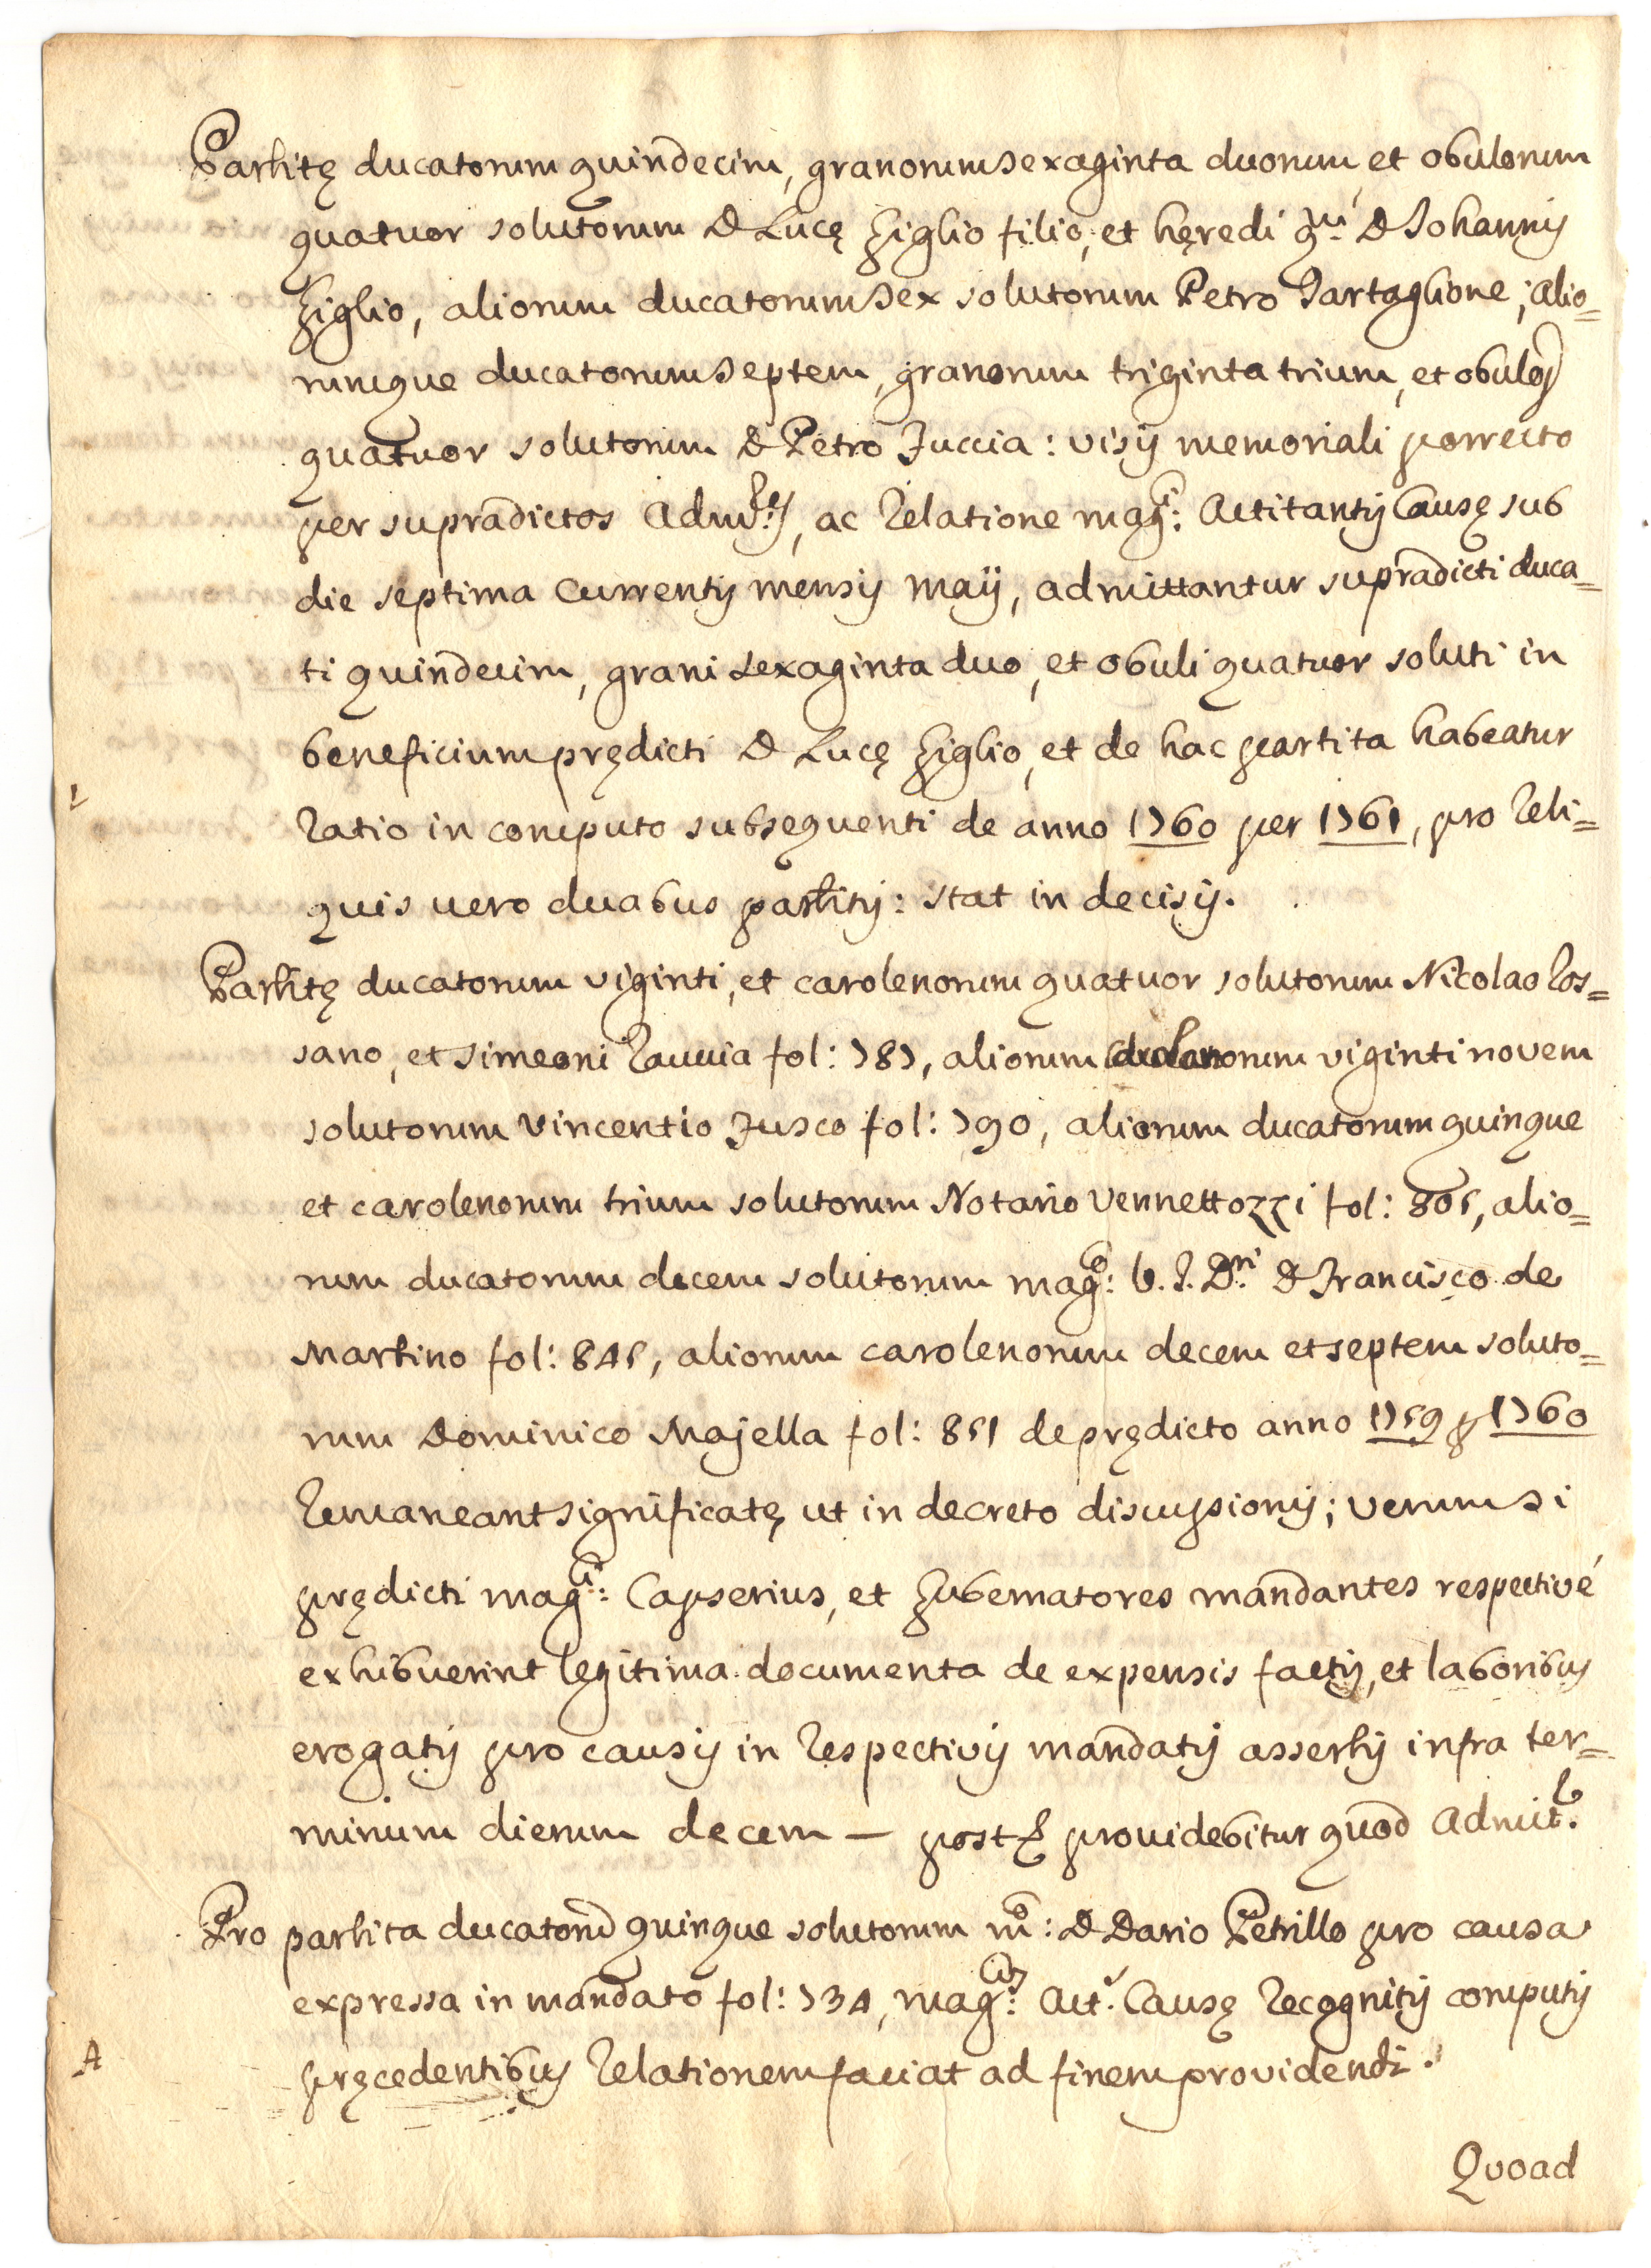 Partitę ducatorum quindecim, granorum sexaginta duorum et obulorum
quatuor solutorum D Lucę Giglio filio, et hęredi qm: D Johannis
Giglio, aliorum ducatorum sex solutorum Petro Tartaglione; alio=
rumque ducatorum septem, granorum triginta trium, et obulor
quatuor solutorum D Petro Fuccia: visis memoriali porrecto
per supradictos Adm:, ac Relatione mag:ci Actitantis Causę sub
die septima Currentis mensis maij, admittantur supradicti duca=
ti quindecim, grani sexaginta duo, et obuli quatuor soluti in
beneficium prędicti D Lucę Giglio, et de hac partita habeatur
ratio in computo subsequenti de anno 1760 per 1761, pro reli=
quis vero duabus partitis: stat in decisis.
Partitę ducatorum viginti, et carolenorum quatuor solutorum Nicolao Ros=
sano, et Simeoni Rauccia fol: 787, aliorum carolenorum viginti novem
solutorum Vincentio Fusco fol: 790, aliorum ducatorum quinque
et carolenorum trium solutorum Notario Vennettozzi fol: 805, alio=
rum ducatorum decem solutorum mag:co U. J. D:ri D Francisco de
Martino fol: 845, aliorum carolenorum decem et septem soluto=
rum Dominico Majella fol: 851 de prędicto anno 1759 p 1760
Remaneant significatę, ut in decreto discussionis; verum si
prędicti mag:ci Casserius, et Gubernatores mandantes respectivé
exhibuerint legitima documenta de expensis factis, et laboribus
erogatis pro causis in respectivis mandatis assertis infra ter=
minum dierum decem — post providebitur quod Admit.
Pro partita ducator quinque solutorum m:o D Dario Petrillo pro causa
expressa in mandato fol: 734, mag: Act. Causę Recognitis computis
pręcedentibus Relationem faciat ad finem providendi.
Quoad